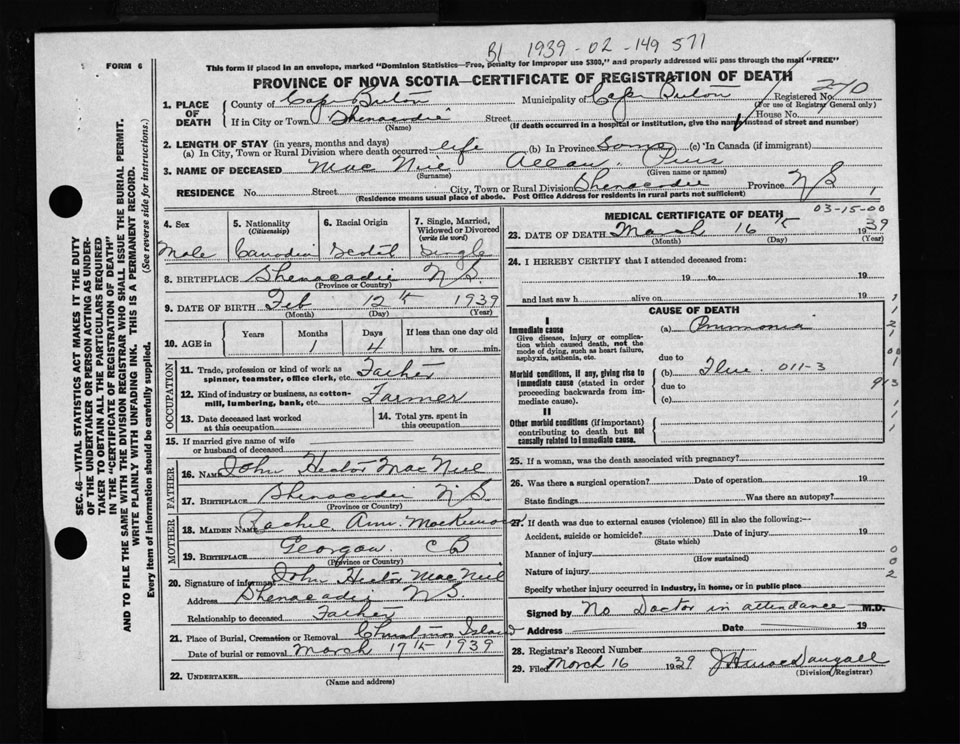 B1 1939-02-149 571
FORM 6
This form if placed in an envelope, marked "Dominion Statistics—Free, penalty for improper use $300," and properly addressed will pass through the mail "FREE"
PROVINCE OF NOVA SCOTIA—CERTIFICATE OF REGISTRATION OF DEATH
1. PLACE OF DEATH County of Cape Breton Municipality of Cape Breton Registered No. 240
(For use of Registrar General only)
If in City or Town Shenacadie Street House No.
(Name) (If death occurred in a hospital or institution, give the name instead of street and number)
2. LENGTH OF STAY (in years, months and days)
(a) In City, Town or Rural Division where death occurred life (b) In Province Same (c) In Canada (if immigrant)
3. NAME OF DECEASED Mac Neil Allan Pius
(Surname) (Given name or names)
RESIDENCE No. Street City, Town or Rural Division Shenacadie Province N S 1
(Residence means usual place of abode. Post Office Address for residents in rural parts not sufficient)
4. Sex 5. Nationality (Citizenship) 6. Racial Origin 7. Single, Married, Widowed or Divorced (write the word)
Male Canadian Scotch Single
8. BIRTHPLACE Shenacadie N S.
(Province or Country)
9. DATE OF BIRTH Feb 12th 1939
(Month) (Day) (Year)
10. AGE in Years Months Days If less than one day old
1 4 hrs. or min.
OCCUPATION
11. Trade, profession or kind of work as spinner, teamster, office clerk, etc. Father
12. Kind of industry or business, as cotton-mill, lumbering, bank, etc. Farmer
13. Date deceased last worked at this occupation 14. Total yrs. spent in this occupation
15. If married give name of wife or husband of deceased
FATHER
16. Name John Hector MacNeil
17. Birthplace Shenacadie N S
MOTHER
18. Maiden Name Rachel Ann MacKinnon
19. Birthplace C B
(Province or Country)
20. Signature of informant John Hector MacNeil
Address Shenacadie N S.
Relationship to deceased Father
21. Place of Burial, Cremation or Removal Christmas Island
Date of burial or removal March 17th 1939
22. Undertaker
(Name and address)
MEDICAL CERTIFICATE OF DEATH
03-15-00
23. DATE OF DEATH March 16th 1939
(Month) (Day) (Year)
24. I HEREBY CERTIFY that I attended deceased from:
19 to 19
and last saw h alive on 19
CAUSE OF DEATH
I
Immediate cause
Give disease, injury or complication which caused death, not the mode of dying, such as heart failure, asphyxia, asthenia, etc.
(a) Pnumonia
due to
Morbid conditions, if any, giving rise to immediate cause (stated in order proceeding backwards from immediate cause).
(b) Flue 011-3
due to
(c)
II
Other morbid conditions (if important) contributing to death but not causally related to immediate cause.
25. If a woman, was the death associated with pregnancy?
26. Was there a surgical operation? Date of operation 19
State findings Was there an autopsy?
27. If death was due to external causes (violence) fill in also the following:—
Accident, suicide or homicide? Date of injury 19
(State which)
Manner of injury
(How sustained)
Nature of injury
Specify whether injury occurred in industry, in home, or in public place
Signed by No Doctor in attendance M.D.
Address Date 19
28. Registrar's Record Number
29. Filed March 16 1939
(Division Registrar)
SEC. 46—VITAL STATISTICS ACT MAKES IT THE DUTY
OF THE UNDERTAKER OR PERSON ACTING AS UNDER-
TAKER TO OBTAIN ALL THE PARTICULARS REQUIRED
IN THE "CERTIFICATE OF REGISTRATION OF DEATH"
AND TO FILE THE SAME WITH THE DIVISION REGISTRAR WHO SHALL ISSUE THE BURIAL PERMIT.
WRITE PLAINLY WITH UNFADING INK. THIS IS A PERMANENT RECORD.
Every item of information should be carefully supplied. (See reverse side for instructions.)